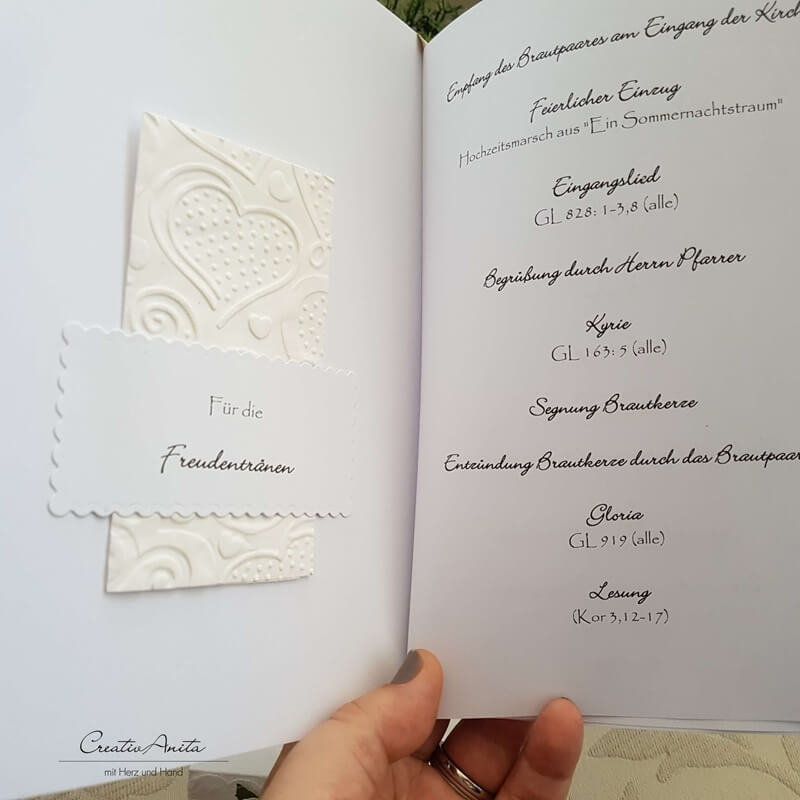 Für die
Freudentränen
CreativAnita
mit Herz und Hand
Empfang des Brautpaares am Eingang der Kirch
Feierlicher Einzug
Hochzeitsmarsch aus "Ein Sommernachtstraum"
Eingangslied
GL 828: 1-3,8 (alle)
Begrüßung durch Herrn Pfarrer
Kyrie
GL 163: 5 (alle)
Segnung Brautkerze
Entzündung Brautkerze durch das Brautpaar
Gloria
GL 919 (alle)
Lesung
(Kor 3,12-17)